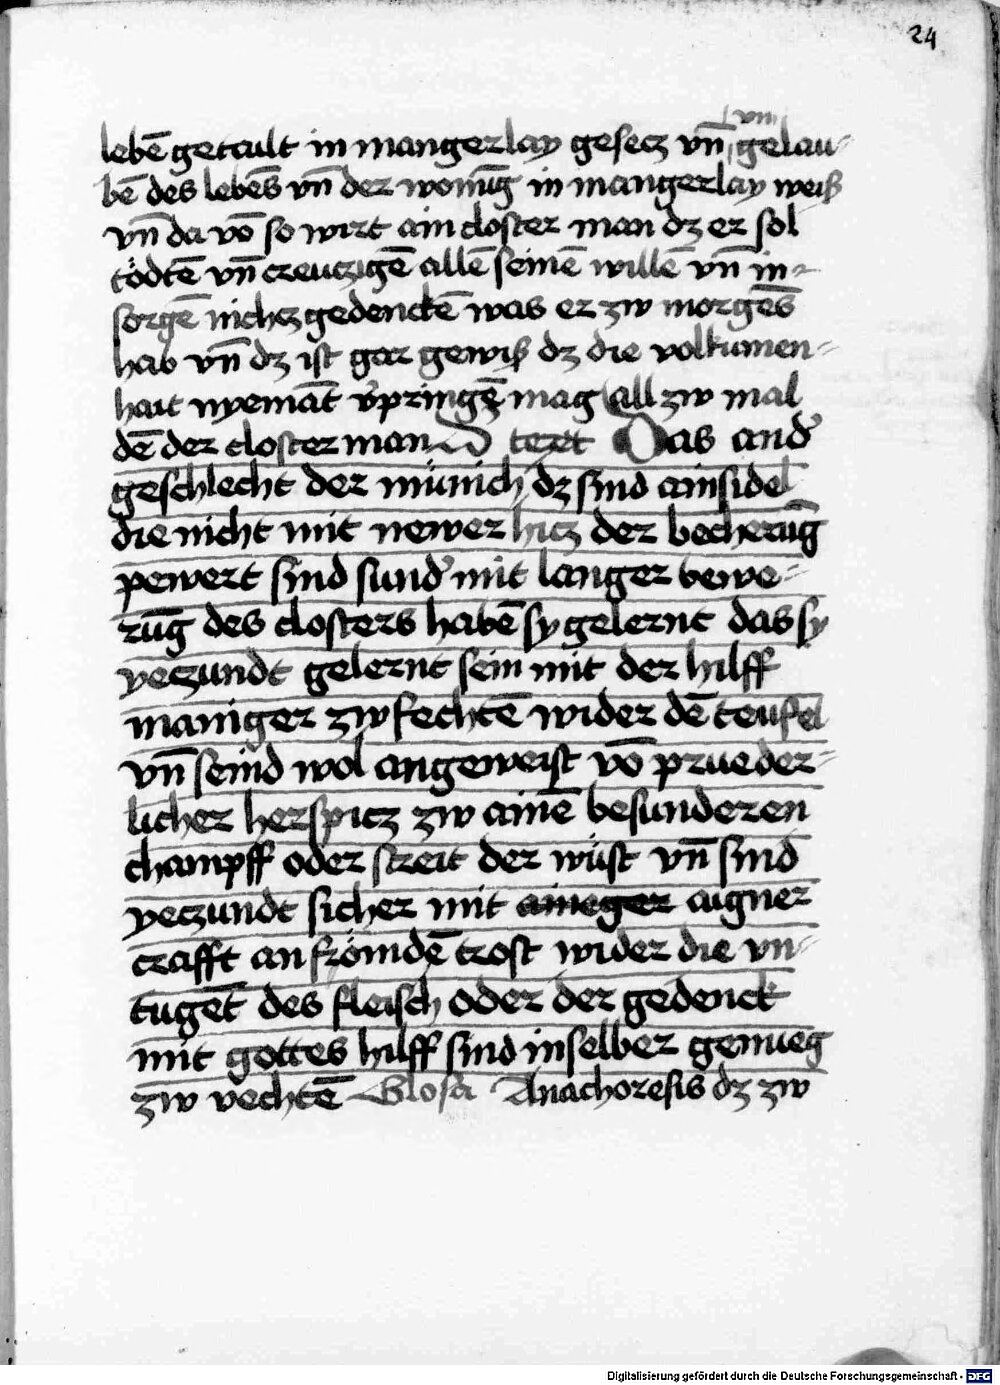 24
vnn
lebē getault in mangerlay gesecz vn̄ gelau-
bē des lebēs vn̄ der wonūg in mangerlay weiß
vn̄ da vō so wirt ain closter man dz er sol
tödtē vn̄ creuczigē allē seinē willē vn̄ in-
sorgē nichcz gedenckē was er zw morgēs
hab vn̄ dz ist gar gewiß dz die volkumen-
hait nyemāt v̓pringē mag all zw mal
dē der closter man teret Das and̓
geschlecht der münich dz sind ainsidel
die nicht mit newer hicz der becherūg
pewert sind sund̓ mit langer bewe-
rūg des closters habē sy gelernt das sy
yeczundt gelernt sein mit der hilff
maniger zw fechtē wider dē teufel
vn̄ seind wol angeweist vō prueder-
licher herspicz zw ainē besunderen
champff oder streit der wüst vn̄ sind
yeczundt sicher mit aineger aigner
crafft an frömdē trost wider die vn-
tugēt des fleisch oder der gedenck
mit gottes hilff sind in selber genueg
zw vechtē Glosa Anachoresis dz zw
Digitalisierung gefördert durch die Deutsche Forschungsgemeinschaft - DFG